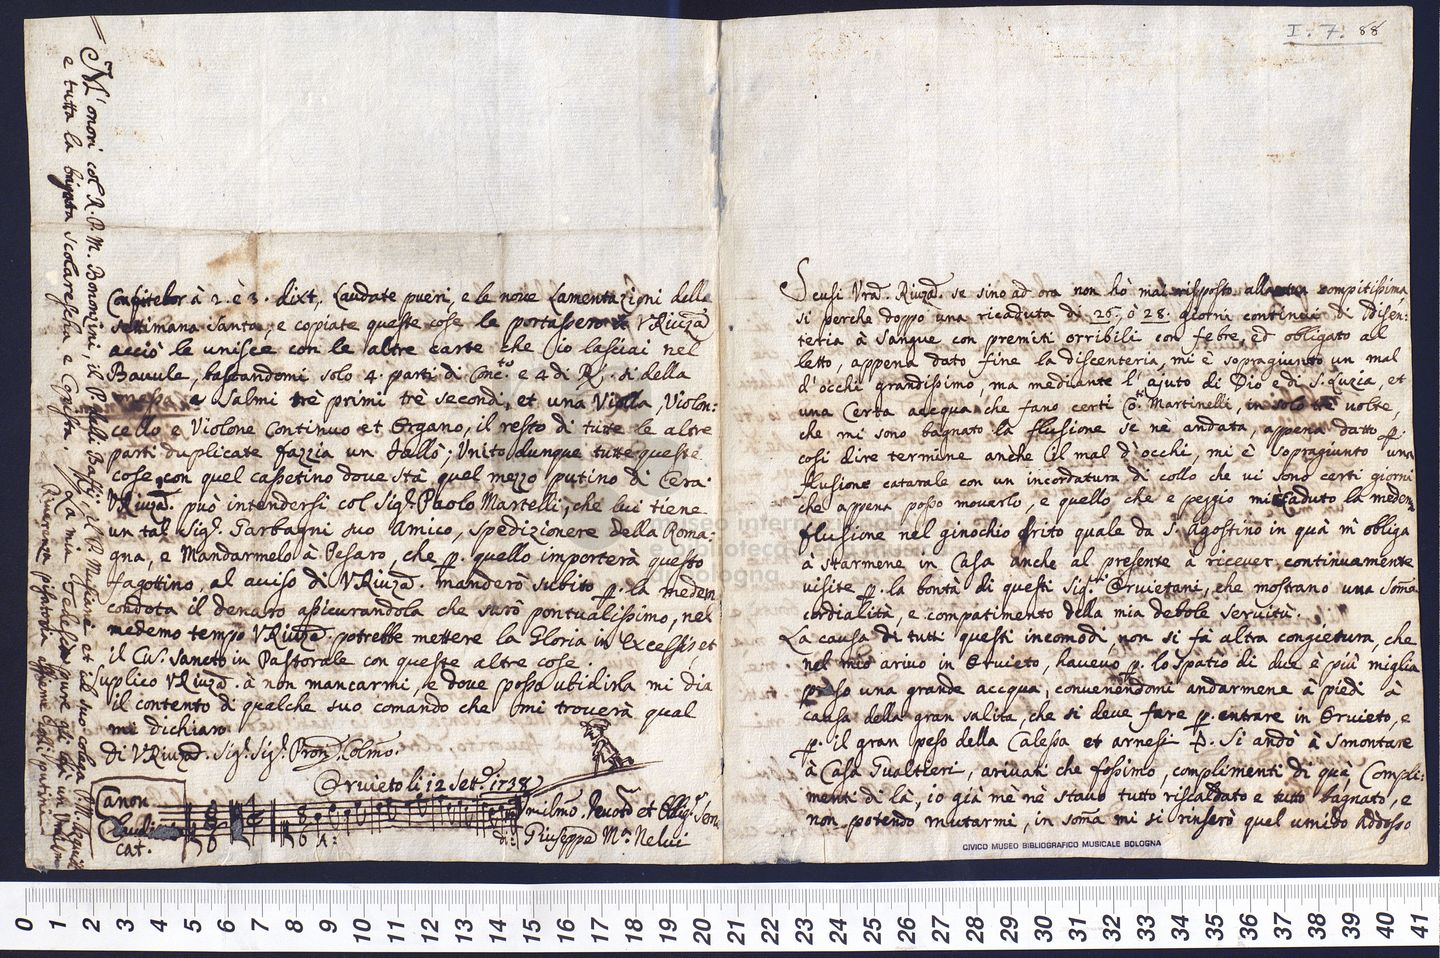 I. 7. 88
Confitebor à 2. e 3. dixt, Laudate pueri, e le nove Lamentazioni della
settimana santa, e copiate queste cose le portassero à VRiuza
acciò le unisce con le altre carte che io lasciai nel
Bauule, bastandomi solo 4. parti di Conc.to e 4 di R. si della
messa e Salmi trè primi trè secondi, et una Violla, Violon:
cello e Violone Continuo et Organo, il resto di tutte le altre
parti duplicate fazzia un fallò; Unito dunque tutte queste
cose con quel cassetino dove stà quel mezzo putino di Cera.
VRiuza. può intendersi col Sig. Paolo Martelli, che lui tiene
un tal Sig. Garbagni suo Amico, spedizionere della Roma:
gna, e Mandarmelo à Pesaro, che p. quello importerà questo
fagottino, al auiso di VRiuza. manderò subito p. la medem
condota il denaro assicurandola che sarò pontualissimo, nel
medemo tempo VRiuza. potrebbe mettere la Gloria in Excelsis et
il Cu. Sancto in Pastorale con queste altre cose.
Suplico VRiuza. à non mancarmi, e dove posso ubidirla mi dia
il contento di qualche suo comando che mi trouerà qual
mi dichiaro
Di VRiuza. Sig. Sig. Pron. Colmo.
Orvieto li 12 Set. 1738
Canon
cat.
Umilmo. Devoto et Obblig. Ser.
Giuseppe M.a Nelvi
M'onori col R. P. M. Bononzini, il P. dalli Baffi, il P. et il suo colega P. M.
e tutta la brigata scolarescha e
La mia pure gli fà un
Riuerenza
Scusi Vra. Riuza. se sino ad ora non hò mai risposto alla compitissima,
si perche doppo una ricaduta di 26. ò 28. giorni continui di Disen:
teria à Sangue con premiti orribili con febre, ed obligato al
letto, appena dato fine la discenteria, mi è sopragiunto un mal
d'occhi grandissimo, ma mediante l'ajuto di Dio e di S. Luzia, et
una Certa accqua che fano certi Martinelli, in solo trè volte,
che mi sono bagnato la flussione se ne andata, appena datto p.
cosi dire termine anche il mal d'occhi, mi è sopragiunto una
flussione catarale con un incordatura di collo che ui sono certi giorni
che appena posso mouerlo, e quello che e peggio mi è caduto la medem
flussione nel ginochio drito quale da S. Agostino in quà m'obliga
a starmene in Casa anche al presente à riceuer continuamente
visite p. la bontà di questi Sig. Orvietani, che mostrano una soma
cordialità, e compatimento della mia debole seruitù.
La causa di tutti questi incomodi, non si fà altra congcetura, che
nel mio ariuo in Orvieto, haueuo p. lo spatio di due è più miglia
presso una grande accqua, convenendomi andarmene à piedi à
causa della gran salita, che si deve fare p. entrare in Orvieto, e
p. il gran peso della Calessa et arnesi D. Si andò à smontare
à Casa Gualtieri, ariuati che fossimo, complimenti di quà Compli:
menti di là, io già mè nè stauo tutto riscaldato e tutto bagnato, e
non potendo mutarmi, in soma mi si rinserò quel umido addosso
CIVICO MUSEO BIBLIOGRAFICO MUSICALE BOLOGNA
museo internazionale
e biblioteca della musica
di bologna
0 1 2 3 4 5 6 7 8 9 10 11 12 13 14 15 16 17 18 19 20 21 22 23 24 25 26 27 28 29 30 31 32 33 34 35 36 37 38 39 40 41